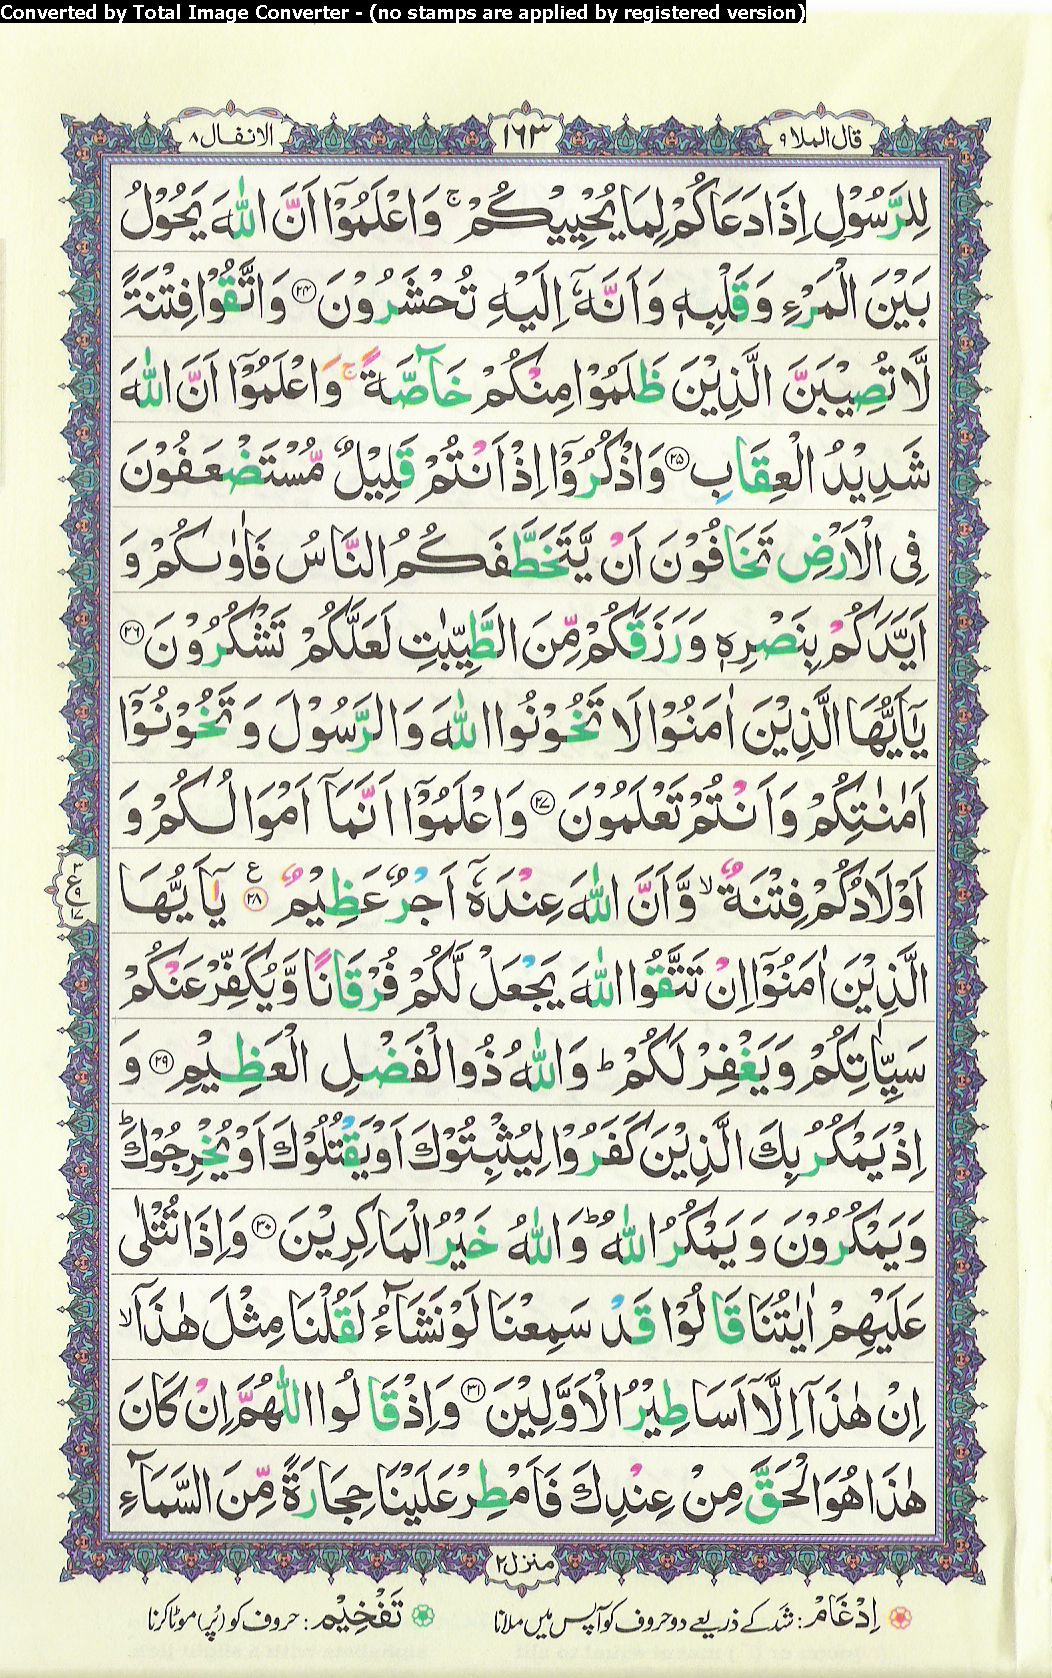 Converted by Total Image Converter - (no stamps are applied by registered version)
قال الملا ٩ ١٦٣ الانفال ٨
لِلرَّسُوْلِ اِذَا دَعَاكُمْ لِمَا يُحْيِيْكُمْ ۚ وَاعْلَمُوْۤا اَنَّ اللّٰهَ يَحُوْلُ
بَيْنَ الْمَرْءِ وَقَلْبِهٖ وَاَنَّهٗۤ اِلَيْهِ تُحْشَرُوْنَ ۝٢٤ وَاتَّقُوْا فِتْنَةً
لَّا تُصِيْبَنَّ الَّذِيْنَ ظَلَمُوْا مِنْكُمْ خَآصَّةً ۚ وَاعْلَمُوْۤا اَنَّ اللّٰهَ
شَدِيْدُ الْعِقَابِ ۝٢٥ وَاذْكُرُوْۤا اِذْ اَنْتُمْ قَلِيْلٌ مُّسْتَضْعَفُوْنَ
فِى الْاَرْضِ تَخَافُوْنَ اَنْ يَّتَخَطَّفَكُمُ النَّاسُ فَاٰوٰىكُمْ وَ
اَيَّدَكُمْ بِنَصْرِهٖ وَرَزَقَكُمْ مِّنَ الطَّيِّبٰتِ لَعَلَّكُمْ تَشْكُرُوْنَ ۝٢٦
يٰۤاَيُّهَا الَّذِيْنَ اٰمَنُوْا لَا تَخُوْنُوا اللّٰهَ وَالرَّسُوْلَ وَتَخُوْنُوْۤا
اَمٰنٰتِكُمْ وَاَنْتُمْ تَعْلَمُوْنَ ۝٢٧ وَاعْلَمُوْۤا اَنَّمَاۤ اَمْوَالُكُمْ وَ
اَوْلَادُكُمْ فِتْنَةٌ ۙ وَّاَنَّ اللّٰهَ عِنْدَهٗۤ اَجْرٌ عَظِيْمٌ ۝٢٨ ع يٰۤاَيُّهَا
٣
ع
٩
١٧
الَّذِيْنَ اٰمَنُوْۤا اِنْ تَتَّقُوا اللّٰهَ يَجْعَلْ لَّكُمْ فُرْقَانًا وَّيُكَفِّرْ عَنْكُمْ
سَيِّاٰتِكُمْ وَيَغْفِرْ لَكُمْ ؕ وَاللّٰهُ ذُو الْفَضْلِ الْعَظِيْمِ ۝٢٩ وَ
اِذْ يَمْكُرُ بِكَ الَّذِيْنَ كَفَرُوْا لِيُثْبِتُوْكَ اَوْ يَقْتُلُوْكَ اَوْ يُخْرِجُوْكَ ؕ
وَيَمْكُرُوْنَ وَيَمْكُرُ اللّٰهُ ؕ وَاللّٰهُ خَيْرُ الْمَاكِرِيْنَ ۝٣٠ وَاِذَا تُتْلٰى
عَلَيْهِمْ اٰيٰتُنَا قَالُوْا قَدْ سَمِعْنَا لَوْ نَشَآءُ لَقُلْنَا مِثْلَ هٰذَاۤ ۙ
اِنْ هٰذَاۤ اِلَّاۤ اَسَاطِيْرُ الْاَوَّلِيْنَ ۝٣١ وَاِذْ قَالُوا اللّٰهُمَّ اِنْ كَانَ
هٰذَا هُوَ الْحَقَّ مِنْ عِنْدِكَ فَاَمْطِرْ عَلَيْنَا حِجَارَةً مِّنَ السَّمَآءِ
منزل ٢
اِدْغَامْ: شَد کے ذریعے دو حروف کو آپس میں ملانا تَفْخِيْمْ: حروف کو (پُر) موٹا کرنا